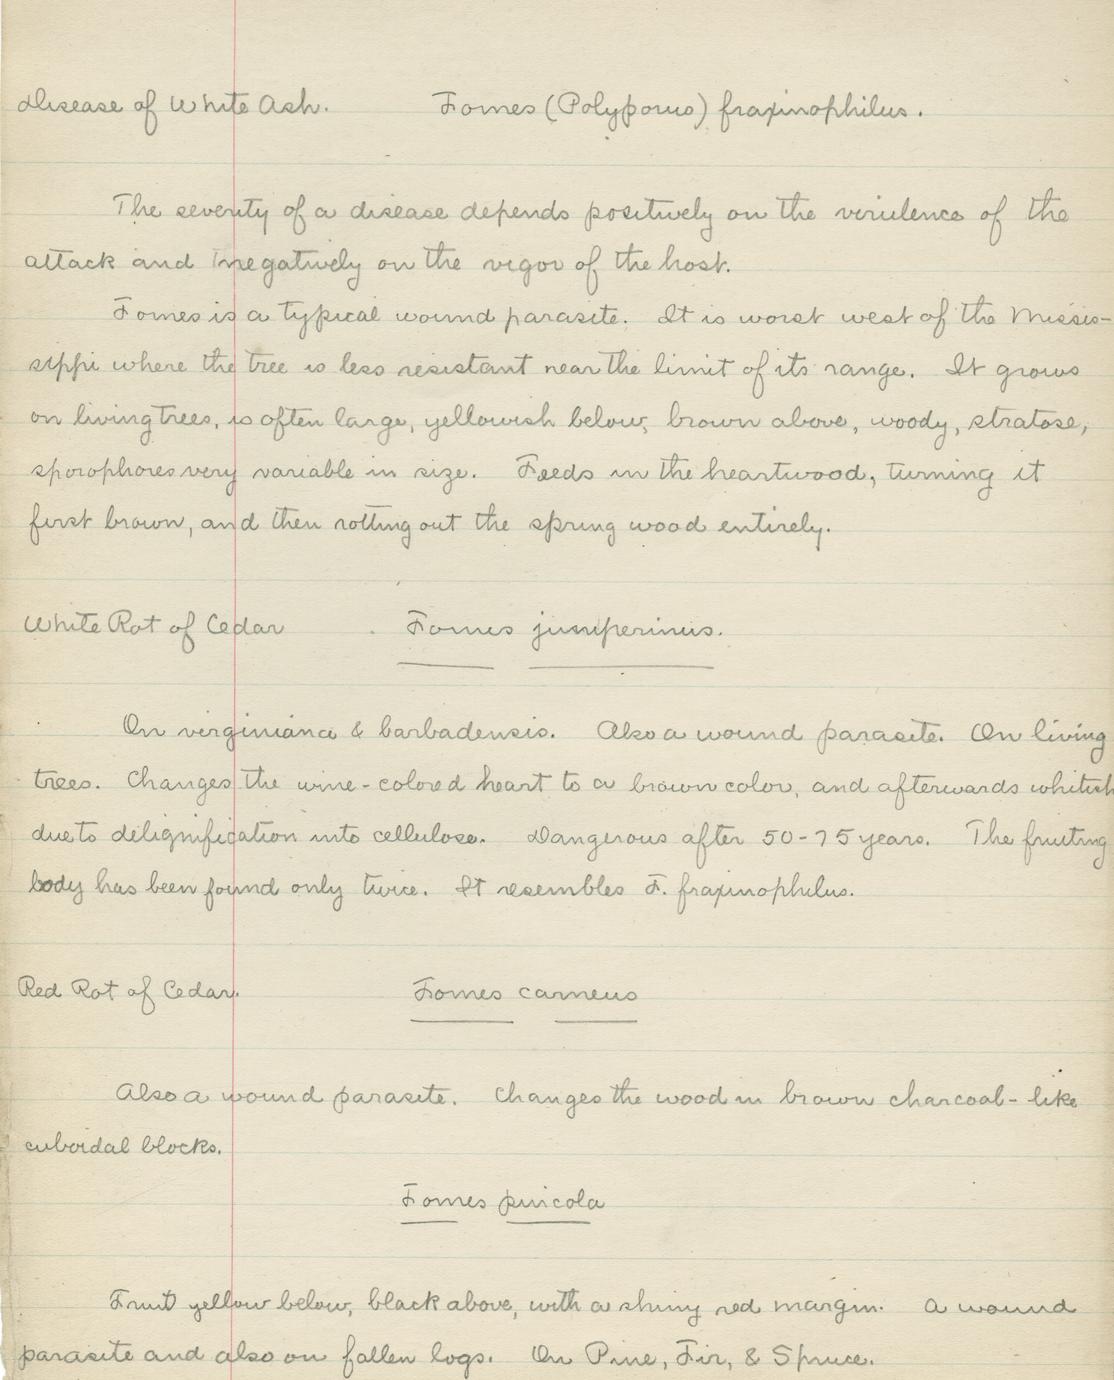 Disease of White Ash. Fomes (Polyporus) fraxinophilus.
The severity of a disease depends positively on the virulence of the
attack and negatively on the vigor of the host.
Fomes is a typical wound parasite. It is worst west of the Missis-
sippi where the tree is less resistant near the limit of its range. It grows
on living trees, is often large, yellowish below, brown above, woody, stratose,
sporophores very variable in size. Feeds in the heartwood, turning it
first brown, and then rotting out the spring wood entirely.
White Rot of Cedar Fomes juniperinus.
On virginiana & barbadensis. Also a wound parasite. On living
trees. Changes the wine-colored heart to a brown color, and afterwards whitish
due to delignification into cellulose. Dangerous after 50-75 years. The fruiting
body has been found only twice. It resembles F. fraxinophilus.
Red Rot of Cedar. Fomes carneus
Also a wound parasite. Changes the wood in brown charcoal-like
cuboidal blocks.
Fomes pinicola
Fruit yellow below, black above, with a shiny red margin. A wound
parasite and also on fallen logs. On Pine, Fir, & Spruce.